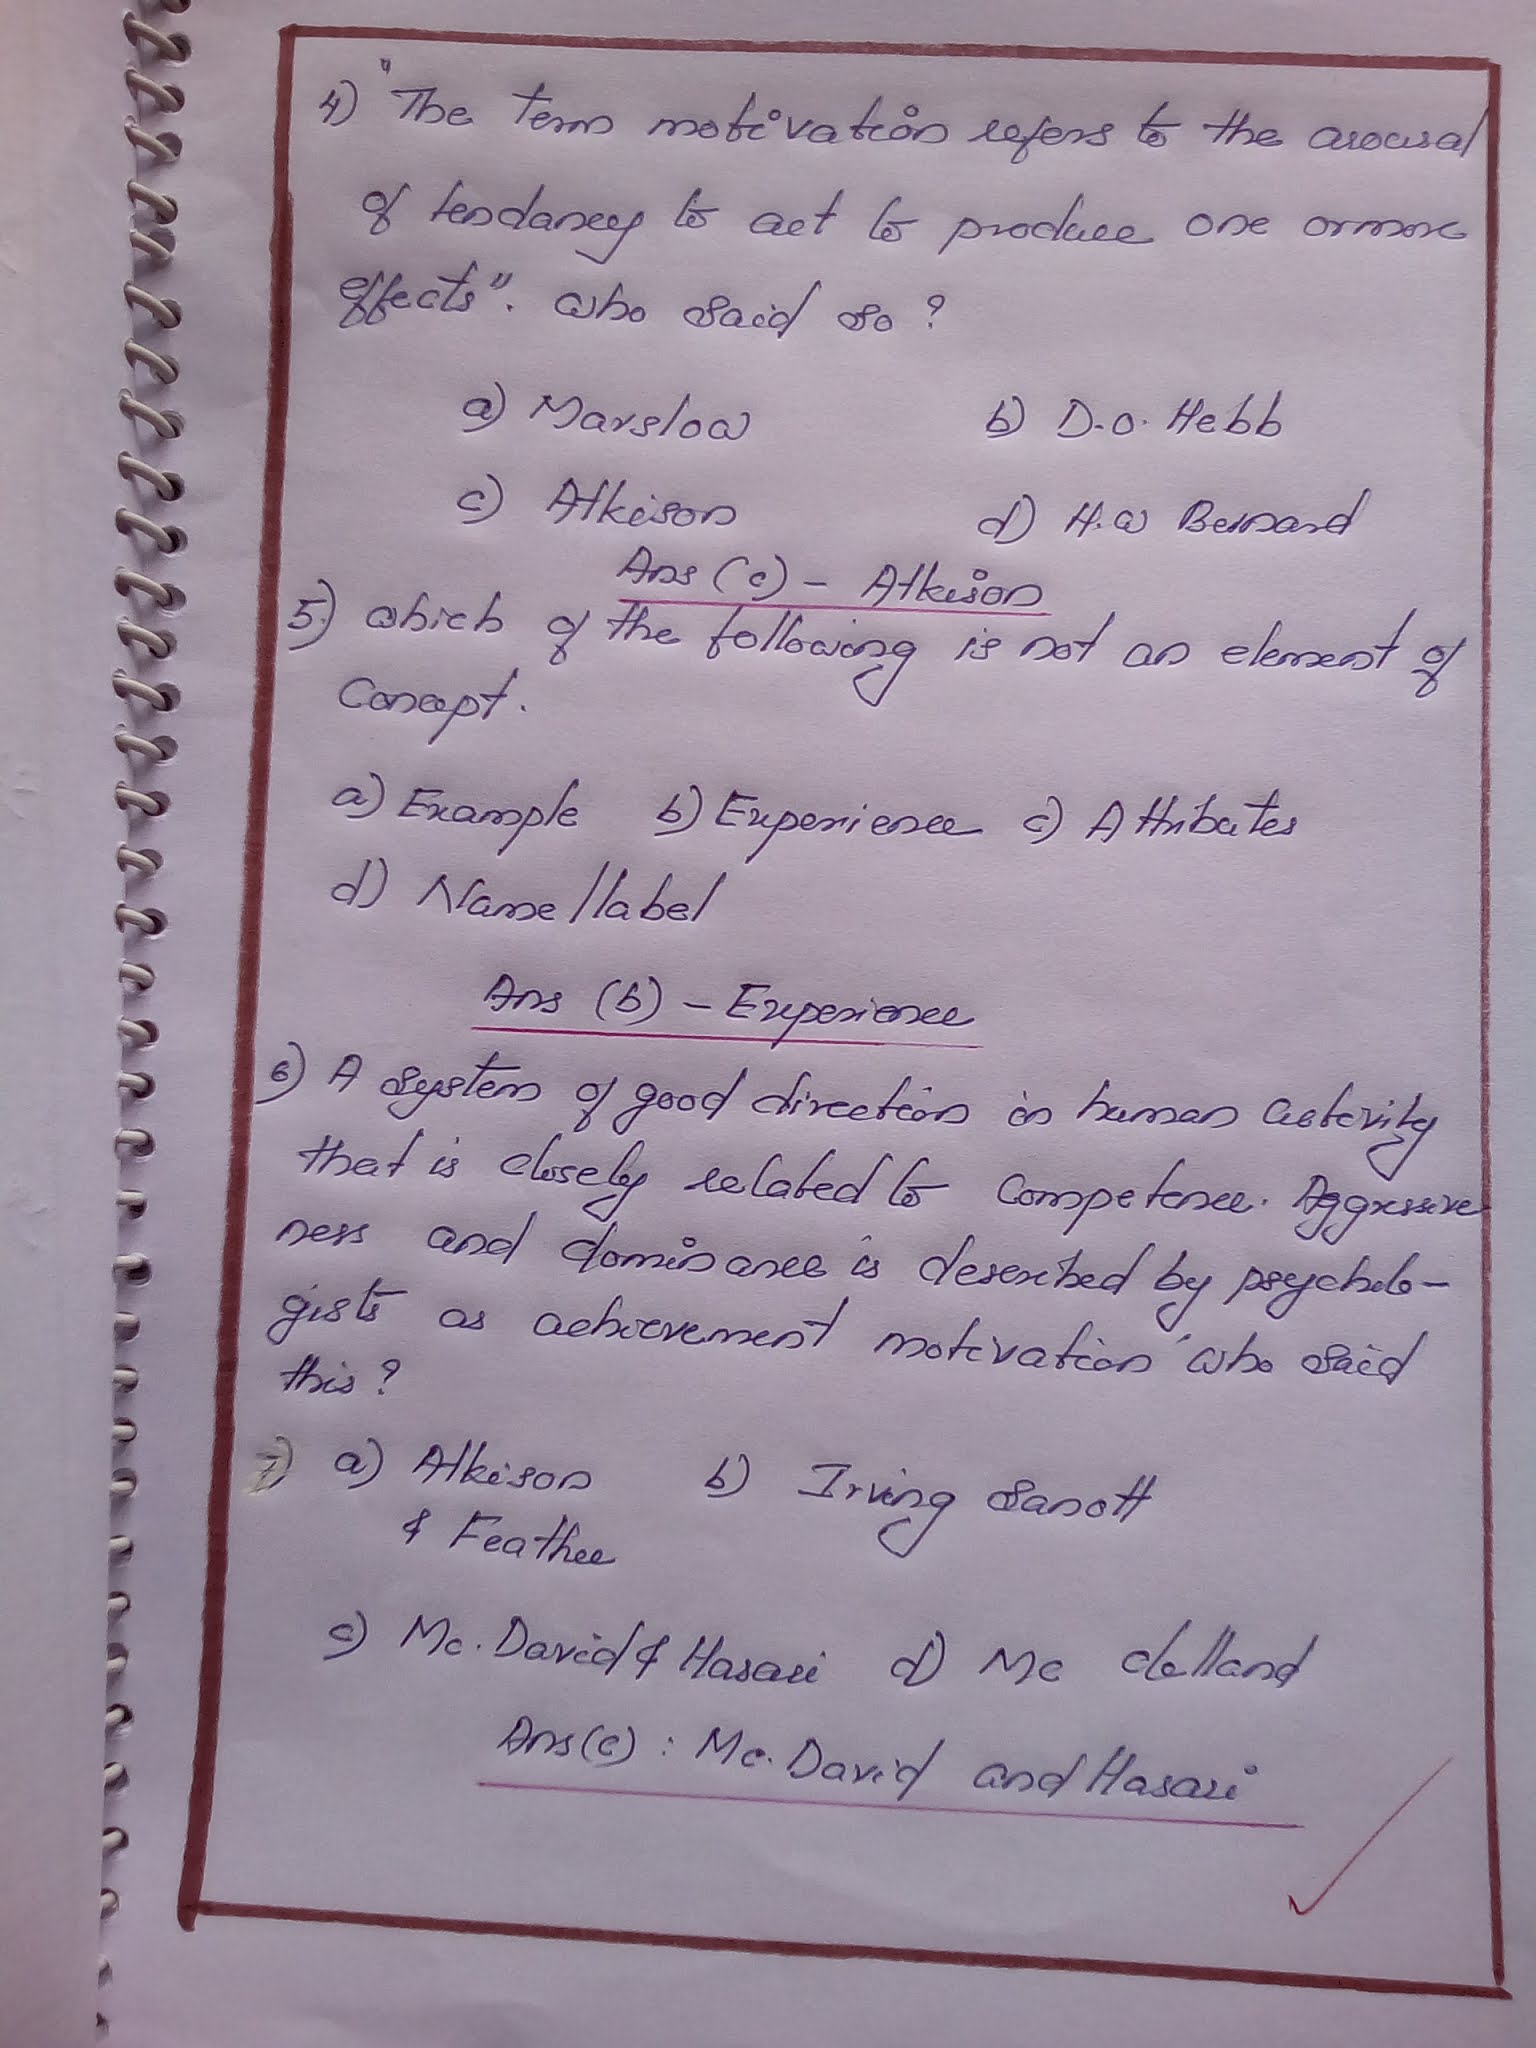 4) "The term motivation refers to the arousal
of tendancy to act to produce one or more
effects". Who said so?
a) Marslow b) D.O. Hebb
c) Atkison d) H.W Bernard
Ans (c) - Atkison
5) Which of the following is not an element of
Concept.
a) Example b) Experience c) Attributes
d) Name/label
Ans (b) - Experience
6) A system of good direction in human activity
that is closely related to competence. Aggressive
ness and dominance is described by psycholo-
gists as achievement motivation' who said
this?
7) a) Atkison b) Irving Sanott
& Feather
c) Mc. David & Hasari d) Mc clelland
Ans(c) : Mc. David and Hasari